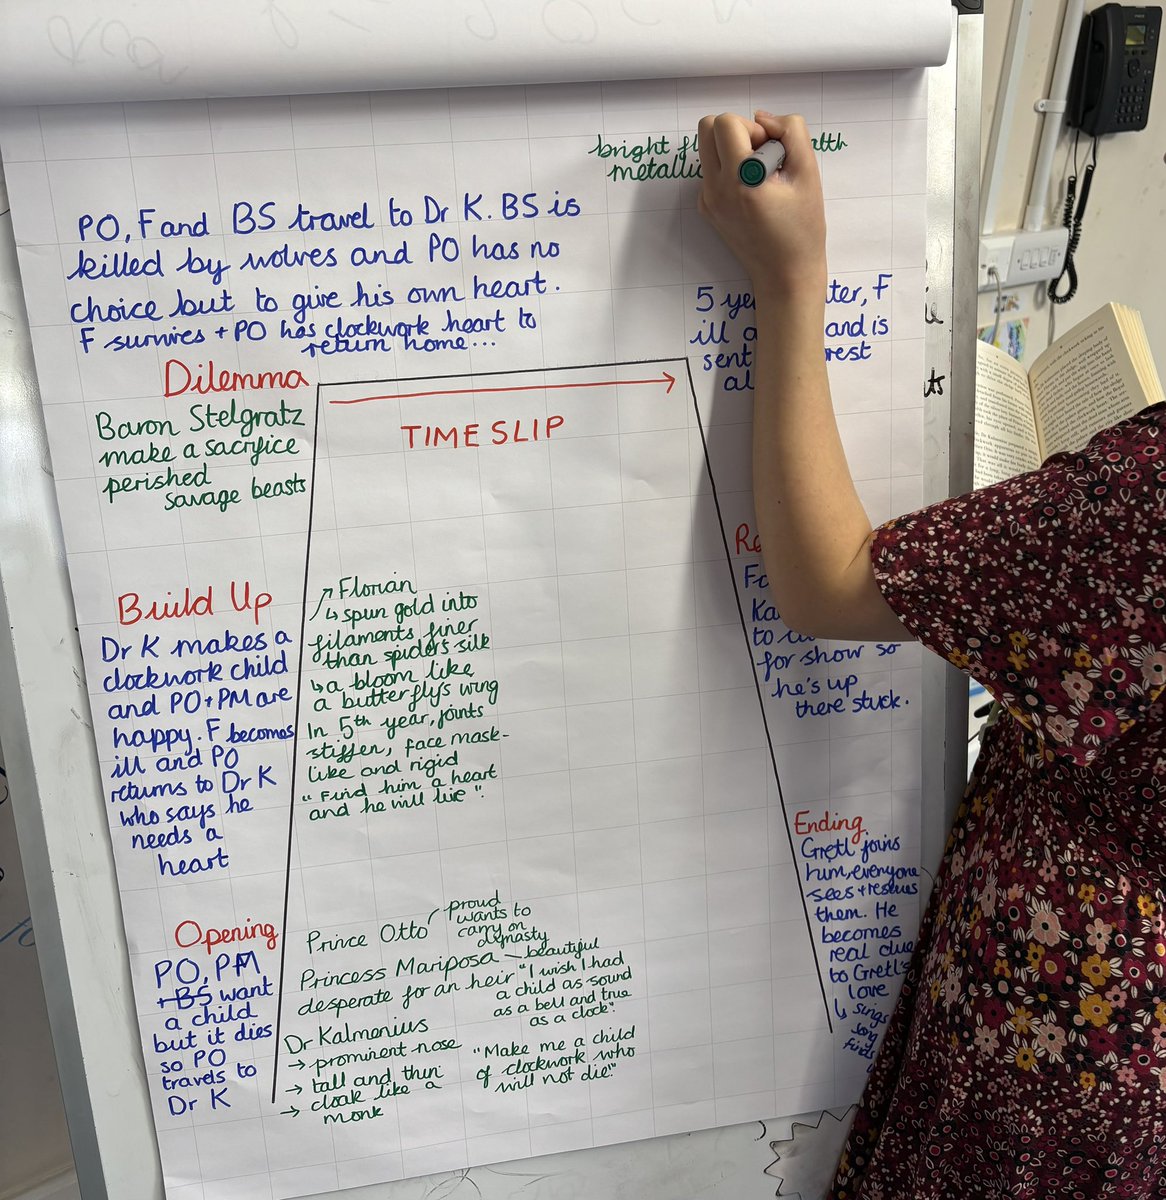 bright
PO, F and BS travel to Dr K. BS is
killed by wolves and PO has no
choice but to give his own heart.
F survives + PO has clockwork heart to
return home...
Dilemma
Baron Stelgratz
make a sacrifice
perished
savage beasts
TIME SLIP
5
F
ill and is
sent
Build Up
Dr K makes a
clockwork child
and PO + PM are
happy. F becomes
ill and PO
returns to Dr K
who says he
needs a
heart
Florian
↳ spun gold into
filaments finer
than spiders silk
↳ a bloom like
a butterfly's wing
In 5th year, joints
stiffen, face mask-
like and rigid
"Find him a heart
and he will live".
to
for show so
he's up
there stuck.
Opening
PO, PM
+ BS want
a child
but it dies
so PO
travels to
Dr K
Prince Otto
proud
wants to
carry on
dynasty
Princess Mariposa – beautiful
desperate for an heir
"I wish I had
a child as sound
as a bell and true
as a clock".
Dr Kalmenius
→ prominent nose
→ tall and thin
→ cloak like a
monk
"Make me a child
of clockwork who
will not die".
Ending
Gretl joins
him, everyone
sees + rescues
them. He
becomes
real due
to Gretl's
love
↳ sings
song
finds